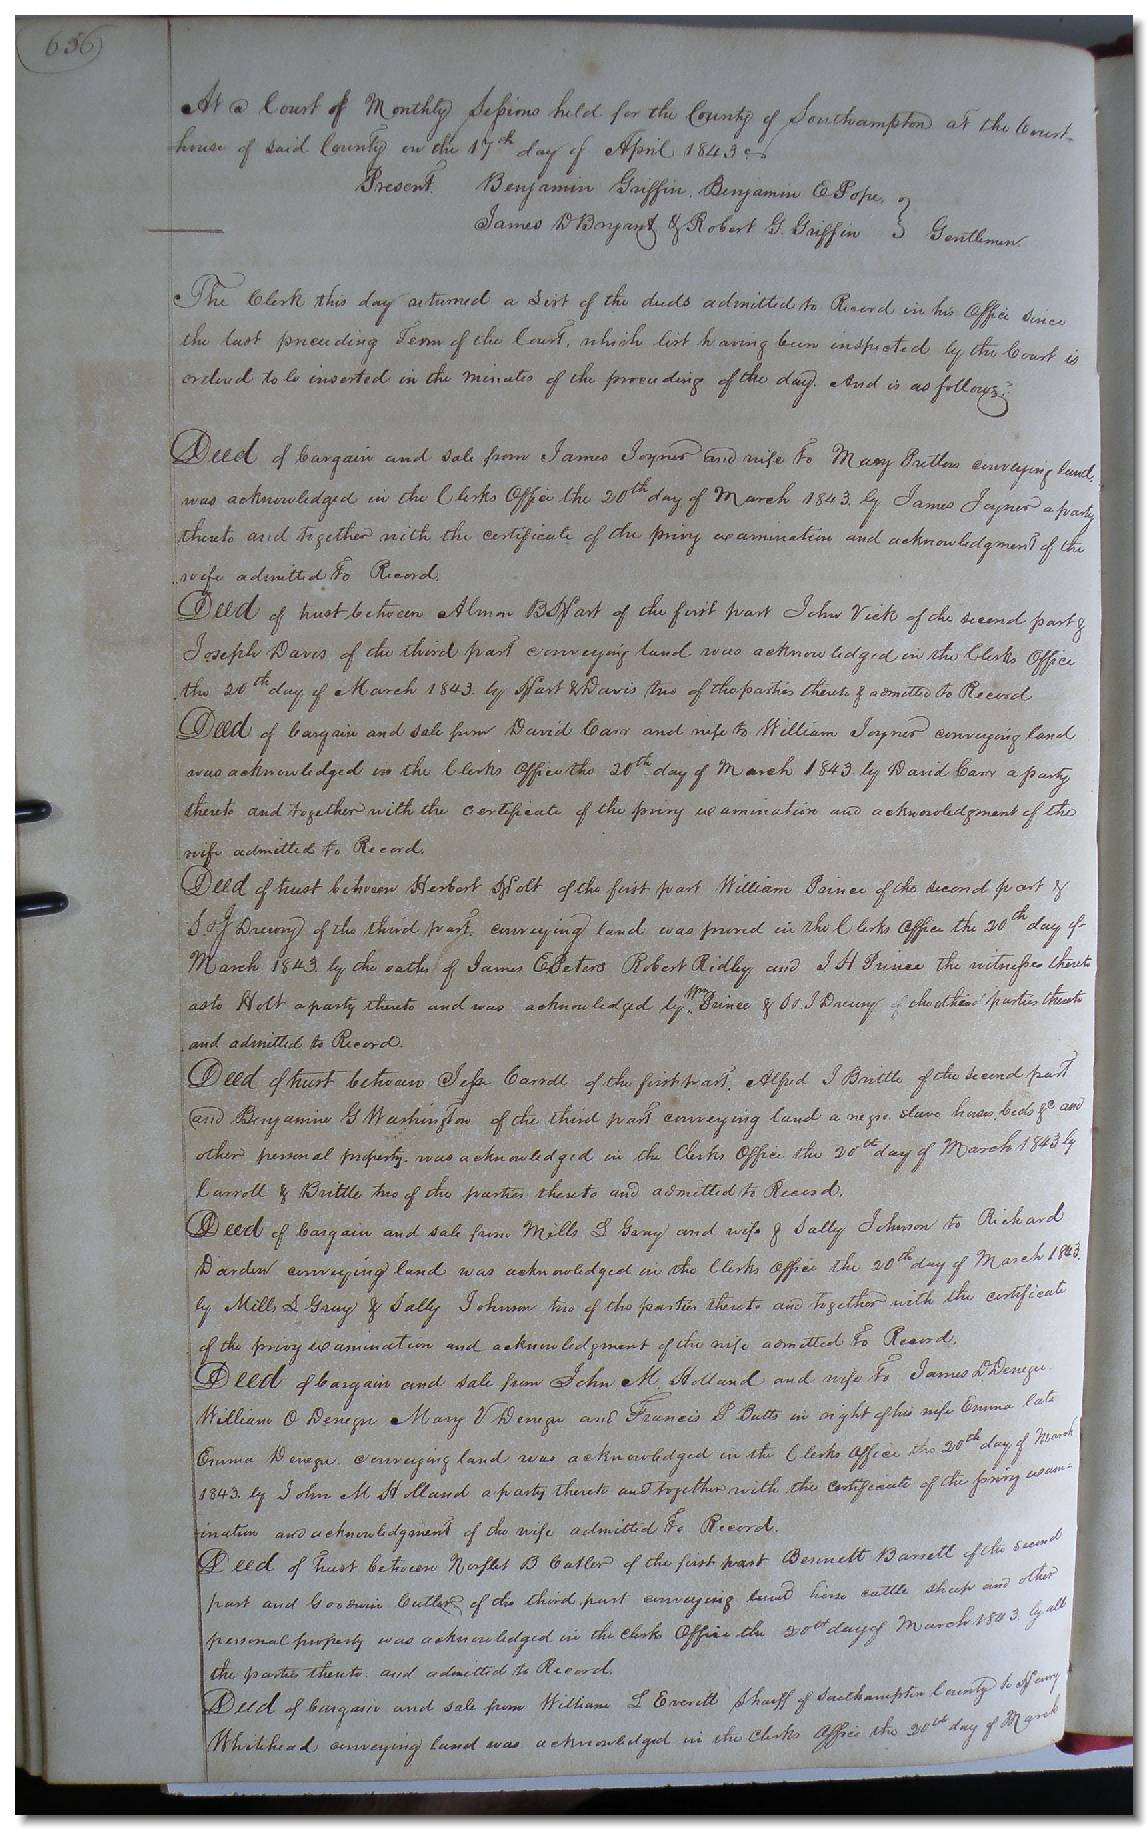 656
At a Court of Monthly Sessions held for the County of Southampton at the Court
house of said County on the 17th day of April 1843
Present. Benjamin Griffin, Benjamin E Pope,
James D Bryant & Robert G. Griffin } Gentlemen
The Clerk this day returned a List of the deeds admitted to Record in his Office since
the last preceeding Term of the Court, which list having been inspected by the Court is
ordered to be inserted in the minutes of the proceeding of the day. And is as follows:
Deed of bargain and sale from James Joyner and wife to Mary Pretlow conveying land
was acknowledged in the Clerks Office the 20th day of March 1843. by James Joyner a party
thereto and together with the certificate of the privy examination and acknowledgment of the
wife admitted to Record.
Deed of trust between Almon B Hart of the first part John Vick of the second part &
Joseph Davis of the third part conveying land was acknowledged in the Clerks Office
the 20th day of March 1843. by Hart & Davis two of the parties thereto & admitted to Record
Deed of bargain and sale from David Carr and wife to William Joyner conveying land
was acknowledged in the Clerks Office the 20th day of March 1843. by David Carr a party
thereto and together with the certificate of the privy examination and acknowledgment of the
wife admitted to Record.
Deed of trust between Herbert Holt of the first part William Prince of the second part &
Drewry of the third part. conveying land was proved in the Clerks Office the 20th day of
March 1843. by the oaths of James E Peters Robert Ridley and J H Prince the witnesses thereto
as to Holt a party thereto and was acknowledged by Wm Prince & Drewry the other parties thereto
and admitted to Record.
Deed of trust between Jesse Carroll of the first part, Alfred J Brittle of the second part
and Benjamine G Washington of the third part conveying land a negro slave horses, beds &c and
other personal property. was acknowledged in the Clerks Office the 20th day of March 1843 by
Carroll & Brittle two of the parties thereto and admitted to Record.
Deed of bargain and sale from Mills L Gray and wife & Sally Johnson to Richard
Darden conveying land was acknowledged in the Clerks Office the 20th day of March 1843.
by Mills L Gray & Sally Johnson two of the parties thereto and together with the certificate
of the privy examination and acknowledgment of the wife admitted to Record.
Deed of bargain and sale from John M Holland and wife to James D Denegre
William O Denegre Mary V Denegre and Francis P Butts in right of his wife Emma late
Emma Denegre. conveying land was acknowledged in the Clerks Office the 20th day of March
1843. by John M Holland a party thereto and together with the certificate of the privy exam-
ination and acknowledgment of the wife admitted to Record.
Deed of trust between Norflet B Cutler of the first part Bennett Barrett of the second
part and Goodwin Cutler of the third part conveying land horse cattle sheep and other
personal property was acknowledged in the Clerks Office the 20th day of March 1843. by all
the parties thereto. and admitted to Record.
Deed of bargain and sale from William L Everett Sheriff of Southampton County to Henry
Whitehead conveying land was acknowledged in the Clerks Office the 20th day of March